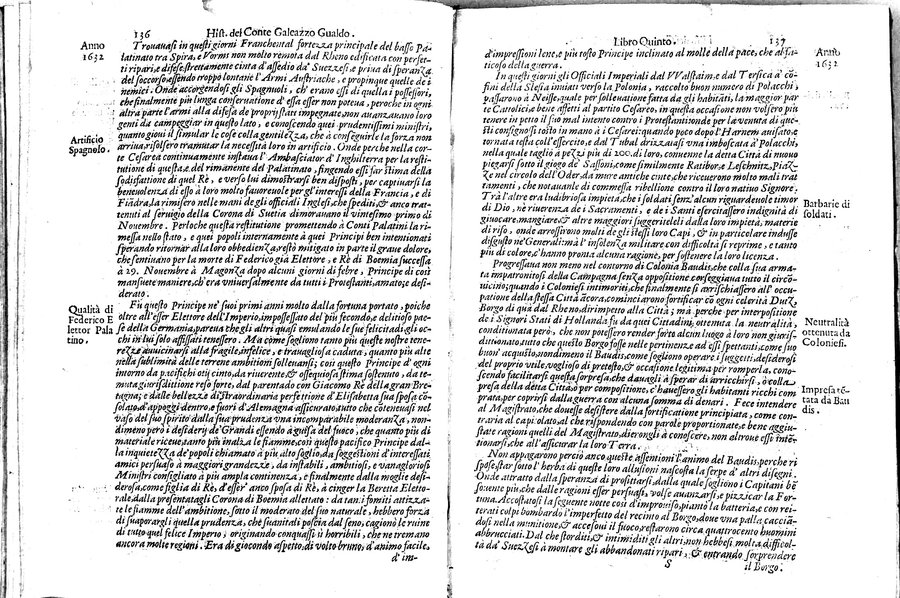 136 Hist. del Conte Galeazzo Gualdo.
Anno
1632
Trouauasi in questi giorni Franchental fortezza principale del basso Pa-
latinato tra Spira, e Vormi non molto remota dal Rheno edificata con perfet-
ti ripari, e difese, strettamente cinta d'assedio da' Suezzesi, e priua di speranza
del soccorso, essendo troppo lontane l'Armi Austriache, e propinque quelle de i
nemici. Onde accorgendosi gli Spagnuoli, ch'erano essi di quella i possessori,
che finalmente più lunga conseruatione d'essa esser non poteua, peroche in ogni
altra parte l'armi alla difesa de proprij stati impegnate, non auanzauano loro
genti da campeggiar in questo lato, e conoscendo quei prudentissimi ministri,
Artificio
Spagnolo.
quanto gioui il simular le cose colla gentilezza, che à conseguirle la forza non
arriua, risolsero tramutar la necessità loro in artificio. Onde perche nella corte
Cesarea continuamente instaua l'Ambasciator d'Inghilterra per la resti-
tutione di questa, e del rimanente del Palatinato, fingendo essi far stima della
sodisfattione di quel Rè, e verso lui dimostrarsi ben disposti, per captiuarsi la
beneuolenza di esso à loro molto fauoreuole per gl'interessi della Francia, e di
Fiãdra, la rimisero nelle mani degli officiali Inglesi, che spediti, & anco trat-
tenuti al seruigio della Corona di Suetia dimorauano il vintesimo primo di
Nouembre. Perloche questa restitutione promettendo à Conti Palatini la ri-
messa nello stato, e quei popoli internamente à quei Principi ben intentionati
sperando ritornar alla loro obbedienza, restò mitigato in parte il graue dolore,
che sentiuano per la morte di Federico già Elettore, e Rè di Boemia successa
à 29. Nouembre à Magonza dopo alcuni giorni di febre, Principe di così
mansuete maniere, ch'era vniuersalmente da tutti i Protestanti, amato, e desi-
derato.
Qualità di
Federico E
lettor Pala
tino.
Fù questo Principe ne' suoi primi anni molto dalla fortuna portato, poiche
oltre all'esser Elettore dell'Imperio, impossessato del più secondo, e delitioso pae-
se della Germania, pareua che gli altri quasi emulando le sue felicità di gli oc-
chi in lui solo affissati tenessero. Ma come sogliono tanto più queste nostre tene-
rezze auuicinarsi alla fragile, infelice, e trauagliosa caduta, quanto più alte
nella sublimità delle terrene ambitioni solleuansi; così questo Principe d'ogni
intorno da pacifichi otij cinto, da riuerente, & ossequiosa stima sostenuto, da te-
muta giurisdittione reso forte, dal parentado con Giacomo Rè della gran Bre-
tagna; e dalle bellezze di straordinaria perfettione d'Elisabetta sua sposa cõ-
solato, d'appoggi dentro, e fuori d'Alemagna assicurato, tutto che cõtenesse nel
vaso del suo spirito dalla sua prudenza vna incomparabile moderanza, non-
dimeno però i desiderij de' Grandi essendo à guisa del fuoco, che quanto più di
materiale riceue, tanto più inalza le fiamme, così questo pacifico Principe dal-
la inquietezza de' popoli chiamato à più alto soglio, da soggestioni d'interessati
amici persuaso à maggiori grandezze, da instabili, ambitiosi, e vanagloriosi
Ministri consigliato à più ampla continenza, e finalmente dalla moglie desi-
derosa, come figlia di Rè, d'esser anco sposa di Rè, à cinger la Beretta Eletto-
rale, dalla presentatagli Corona di Boemia allettato: da tanti fomiti attizza-
te le fiamme dell'ambitione, sotto il moderato del suo naturale, hebbero forza
di suaporargli quella prudenza, che suanitali poscia dal seno, cagionò le ruine
di tutto quel felice Imperio, originando conquassi sì horribili, che ne tremano
ancora molte regioni. Era di giocondo aspetto, di volto bruno, d'animo facile,
d'im-
Libro Quinto. 137
Anno
1632
d'impressioni lente, e più tosto Principe inclinato al molle della pace, che al fa-
ticoso della guerra.
In questi giorni gli Officiali Imperiali dal VValstaim, e dal Tersica à cõ-
fini della Slesia inuiati verso la Polonia, raccolto buon numero di Polacchi,
passarono à Neisse, quale per solleuatione fatta da gli habitãti, la maggior par-
te Catolici, e bene affetti al partito Cesareo, in questa occasione non volsero più
tenere in petto il suo mal intento contro i Protestanti, onde per la venuta di que-
sti consignosi tosto in mano à i Cesarei: quando poco dopo l'Harnem auisato, e
tornata testa coll'essercito, e dal Tubal drizzatasi vna imboscata à Polacchi,
nella quale tagliò a pezzi più di 200. di loro, conuenne la detta Città di nuouo
piegarsi sotto il giogo de' Sassoni, come similmente Ratibor, e Leschnitz, Piaz-
ze nel circolo dell'Oder, da mure antiche cinte, che riceuerono molto mali trat-
tamenti, che notauanle di commessa ribellione contro il loro natiuo Signore.
Barbarie di
soldati.
Trà l'altre era ludibriosa impietà, che i soldati senz'alcun riguardeuole timor
di Dio, nè riuerenza de i Sacramenti, e de i Santi essercitassero indignità di
giuocare, mangiare, & altre maggiori suggeriteleli dalla loro impietà, materie
di riso, onde arrossirono molti degli stessi loro Capi, & in particolare indusse
disgusto ne' Generali: ma l'insolenza militare con difficoltà si reprime, e tanto
più di colore, c'hanno pronta alcuna ragione, per sostenere la loro licenza.
Progressaua non meno nel contorno di Colonia Baudis, che colla sua arma-
ta impatronitosi della Campagna senz'opposizione corseggiaua tutto il circo-
uicino; quando i Coloniesi intimoriti, che finalmente si arrischiassero all'occu-
patione della stessa Città ãcora, cominciarono fortificar cõ ogni celerità Dutz,
Borgo di quà dal Rheno, dirimpetto alla Città; mà perche per interpositione
Neutralità
ottenuta da
Coloniesi.
de i Signori Stati di Hollanda fù da quei Cittadini ottenuta la neutralità,
conditionata però, che non potessero render forte alcun luogo à loro non giuris-
dittionato, tutto che questo Borgo fosse nelle pertinenze ad essi spettanti, come suo
buon'acquisto, nondimeno il Baudis, come sogliono operare i suggetti, desiderosi
del proprio vtile, voglioso di pretesto, & occasione legitima per romperla, cono-
scendo facilitarsi questa sorpresa, che dauagli à sperar di arricchirsi, ò colla
Impresa tẽ-
tata da Bau
dis.
presa della detta Città, ò per compositione, c'hauessero gli habitanti ricchi com-
prata, per coprirsi dalla guerra con alcuna somma di denari. Fece intendere
al Magistrato, che douesse desistere dalla fortificatione principiata, come con-
traria al capitolato, al che rispondendo con parole proportionate, e bene aggiu-
state ragioni quelli del Magistrato, dierongli à conoscere, non altroue essi inte-
tionarsi, che all'assicurar la loro Terra.
Non appagarono perciò anco queste assentioni l'animo del Baudis, perche ri
spose, star sotto l'herba di queste loro allusioni nascosta la serpe d'altri disegni.
Onde attratto dalla speranza di profittarsi, dalla quale sogliono i Capitani be
souente più che dalle ragioni esser persuasi, volse auanzarsi, e pizzicar la For-
tuna. Accostatosi la seguente notte così d'improuiso, piantò la batteria, e con reite-
rati colpi bombardò l'imperfetto del recinto al Borgo, doue vna palla caccià-
dosi nella munitione, & accesoui il fuoco, restarono circa quattrocento huomini
consummati. Dal che storditi, & intimiditi gli altri, non hebbesi molta difficol-
tà da' Suezzesi à montare gli abbandonati ripari, & entrando sorprender
S il Borgo.